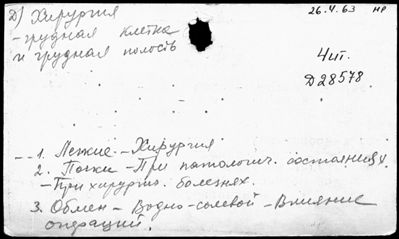 Д) Хирургия 26.4.63 НР
- грудная клетка
и грудная полость
Чит.
Д28578
1. Легкие - Хирургия
2. Почки - При патологич. состояниях
- При хирургич. болезнях.
3. Обмен - Водно-солевой - Влияние
операций.